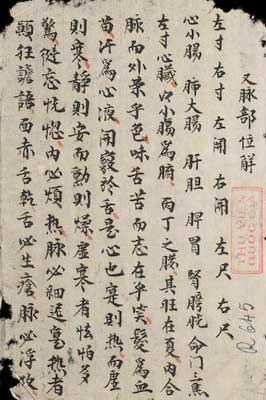 又脉部位觧
左寸 右寸 左関 右関 左尺 右尺
心小腸 肺大腸 肝胆 脾胃 腎膀胱 命门三焦
左寸心臟以小腸爲腑丙丁之臟其旺在夏內合
脉而外榮乎色味舌苦而志在乎笑髮爲血
苗汗爲心液開竅於舌是心也寔則热而虛
則寒静則安而動則燥虛寒者怯怕多
驚健忘恍惚內必煩热脉必細遲寔热者
顛狂譫語面赤舌乾舌必生瘡脉必浮
THƯ VIỆN
QUỐC GIA